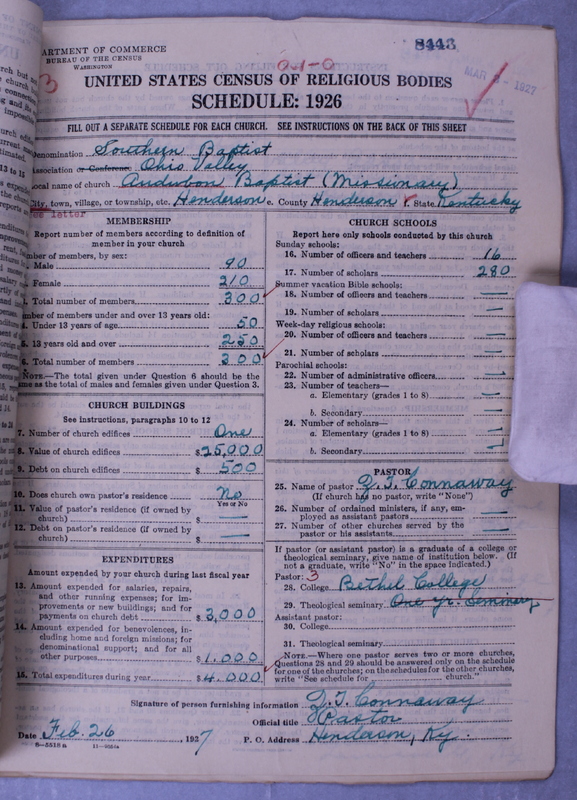 8443
DEPARTMENT OF COMMERCE
BUREAU OF THE CENSUS
WASHINGTON
MAR 1927
UNITED STATES CENSUS OF RELIGIOUS BODIES
SCHEDULE: 1926
FILL OUT A SEPARATE SCHEDULE FOR EACH CHURCH. SEE INSTRUCTIONS ON THE BACK OF THIS SHEET
Denomination Southern Baptist
Association or Conference Ohio Valley
Local name of church Audubon Baptist (Missionary)
City, town, village, or township, etc. Henderson County Henderson State Kentucky
see letter
MEMBERSHIP
Report number of members according to definition of
member in your church
Number of members, by sex:
Male 90
Female 210
Total number of members 300
Number of members under and over 13 years old:
Under 13 years of age 50
5. 13 years old and over 250
6. Total number of members 300
NOTE.—The total given under Question 6 should be the
same as the total of males and females given under Question 3.
CHURCH BUILDINGS
See instructions, paragraphs 10 to 12
7. Number of church edifices One
8. Value of church edifices $25,000
9. Debt on church edifices $ 500
10. Does church own pastor's residence No
Yes or No
11. Value of pastor's residence (if owned by
church) $ —
12. Debt on pastor's residence (if owned by
church) $ —
EXPENDITURES
Amount expended by your church during last fiscal year
13. Amount expended for salaries, repairs,
and other running expenses; for im-
provements or new buildings; and for
payments on church debt $ 3,000
14. Amount expended for benevolences, in-
cluding home and foreign missions; for
denominational support; and for all
other purposes $ 1,000
15. Total expenditures during year $ 4,000
CHURCH SCHOOLS
Report here only schools conducted by this church
Sunday schools:
16. Number of officers and teachers 16
17. Number of scholars 280
Summer vacation Bible schools:
18. Number of officers and teachers —
19. Number of scholars —
Week-day religious schools:
20. Number of officers and teachers —
21. Number of scholars —
Parochial schools:
22. Number of administrative officers —
23. Number of teachers—
a. Elementary (grades 1 to 8) —
b. Secondary —
24. Number of scholars—
a. Elementary (grades 1 to 8) —
b. Secondary —
PASTOR
25. Name of pastor Connaway
(If church has no pastor, write "None")
26. Number of ordained ministers, if any, em-
ployed as assistant pastors —
27. Number of other churches served by the
pastor or his assistants —
If pastor (or assistant pastor) is a graduate of a college or
theological seminary, give name of institution below. (If
not a graduate, write "No" in the space indicated.)
Pastor: 3
28. College Bethel College
29. Theological seminary One yr. Seminary
Assistant pastor:
30. College
31. Theological seminary
NOTE.—Where one pastor serves two or more churches,
Questions 28 and 29 should be answered only on the schedule
for one of the churches; on the schedules for the other churches,
write "See schedule for church."
Signature of person furnishing information Connaway
Official title Pastor
Date Feb. 26, 1927 P. O. Address Henderson, Ky.